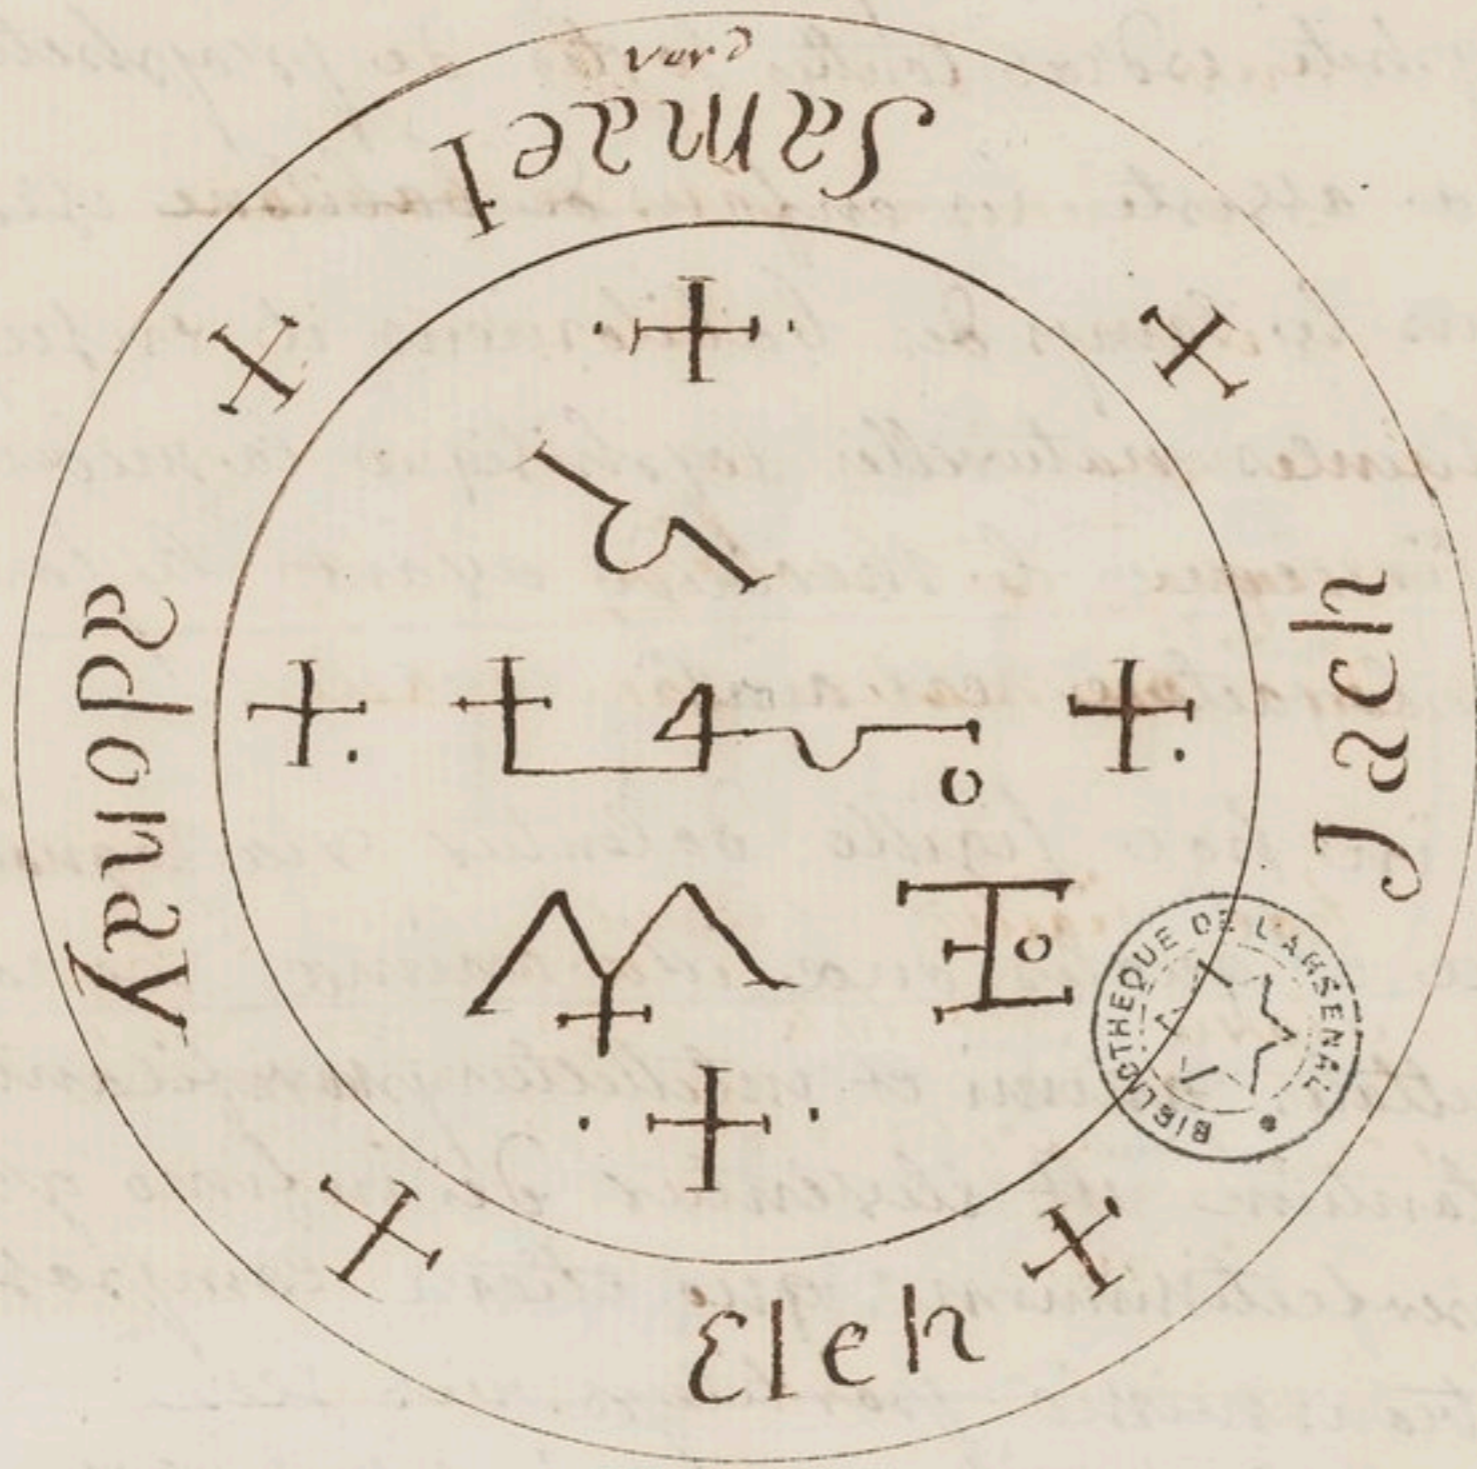 verd
Samael
Jach
Eleh
adonay
BIBLIOTHEQUE DE L'ARSENAL